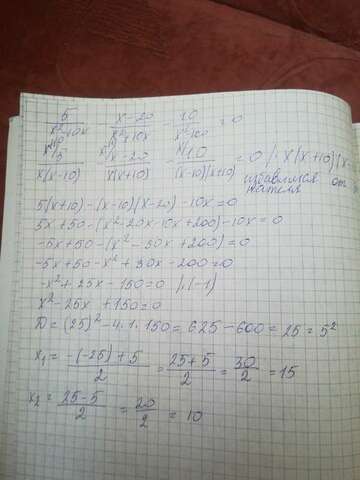 5/(x²-10x) - (x-20)/(x²+10x) - 10/(x²-100) = 0
5/(x(x-10)) - (x-20)/(x(x+10)) - 10/((x-10)(x+10)) = 0 | · x(x+10)(x-
избавимся от
нателя
5(x+10)-(x-10)(x-20)-10x=0
5x+50-(x²-20x-10x+200)-10x=0
-5x+50-(x²-30x+200)=0
-5x+50-x²+30x-200=0
-x²+25x-150=0 |·(-1)
x²-25x+150=0
D=(25)²-4·1·150=625-600=25=5²
x₁= (-(-25)+5)/2 = (25+5)/2 = 30/2 = 15
x₂= (25-5)/2 = 20/2 = 10